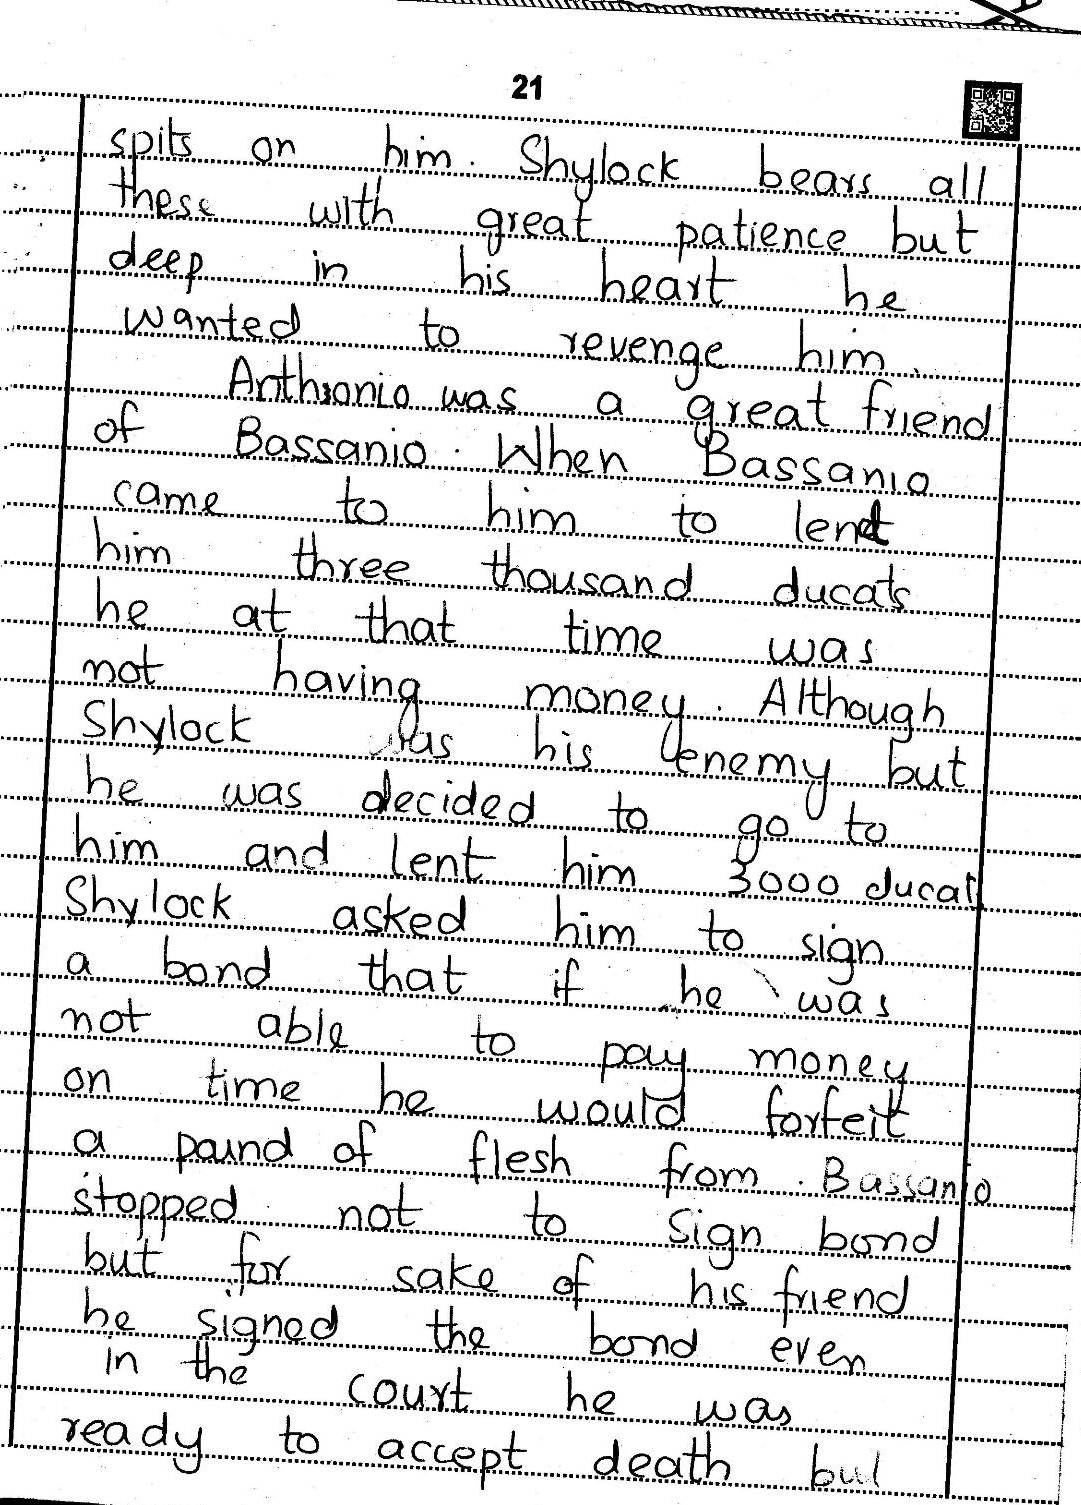 21
spits on him. Shylock bears all
these with great patience but
deep in his heart he
wanted to revenge him.
Anthronio was a great friend
of Bassanio. When Bassanio
came to him to lend
him three thousand ducats
he at that time was
not having money. Although
Shylock was his enemy but
he was decided to go to
him and lent him 3000 ducat
Shylock asked him to sign
a bond that if he was
not able to pay money
on time he would forfeit
a pound of flesh from. Bassanio
stopped not to sign bond
but for sake of his friend
he signed the bond even
in the court he was
ready to accept death but